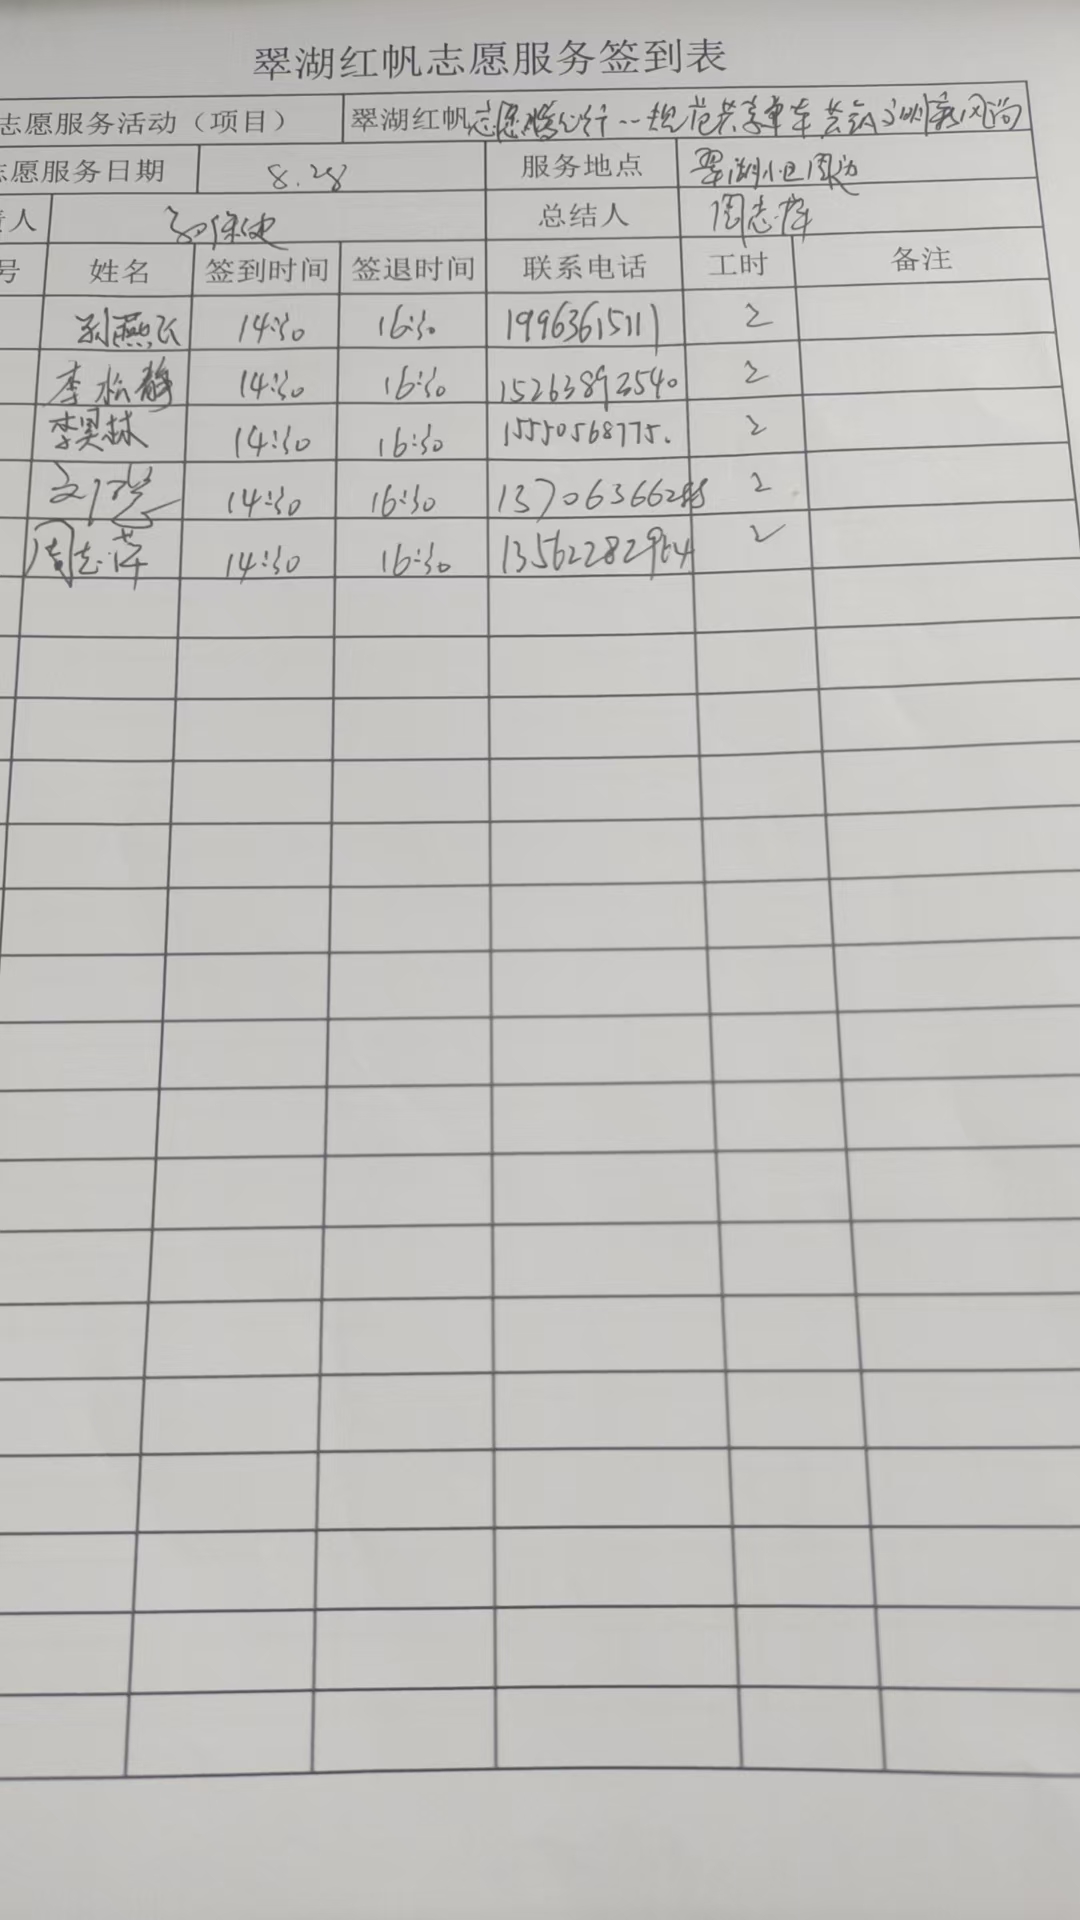 翠湖红帆志愿服务签到表
志愿服务活动（项目） 翠湖红帆志愿 行--规范共享单车 共 文明新风尚
志愿服务日期 8.28 服务地点 翠湖小区周边
责人 总结人 周志萍
号 姓名 签到时间 签退时间 联系电话 工时 备注
孙燕飞 14:30 16:30 19963615111 2
李松静 14:30 16:30 15263892540 2
李昊林 14:30 16:30 15550568775. 2
14:30 16:30 2
周志萍 14:30 16:30 13562282964 2